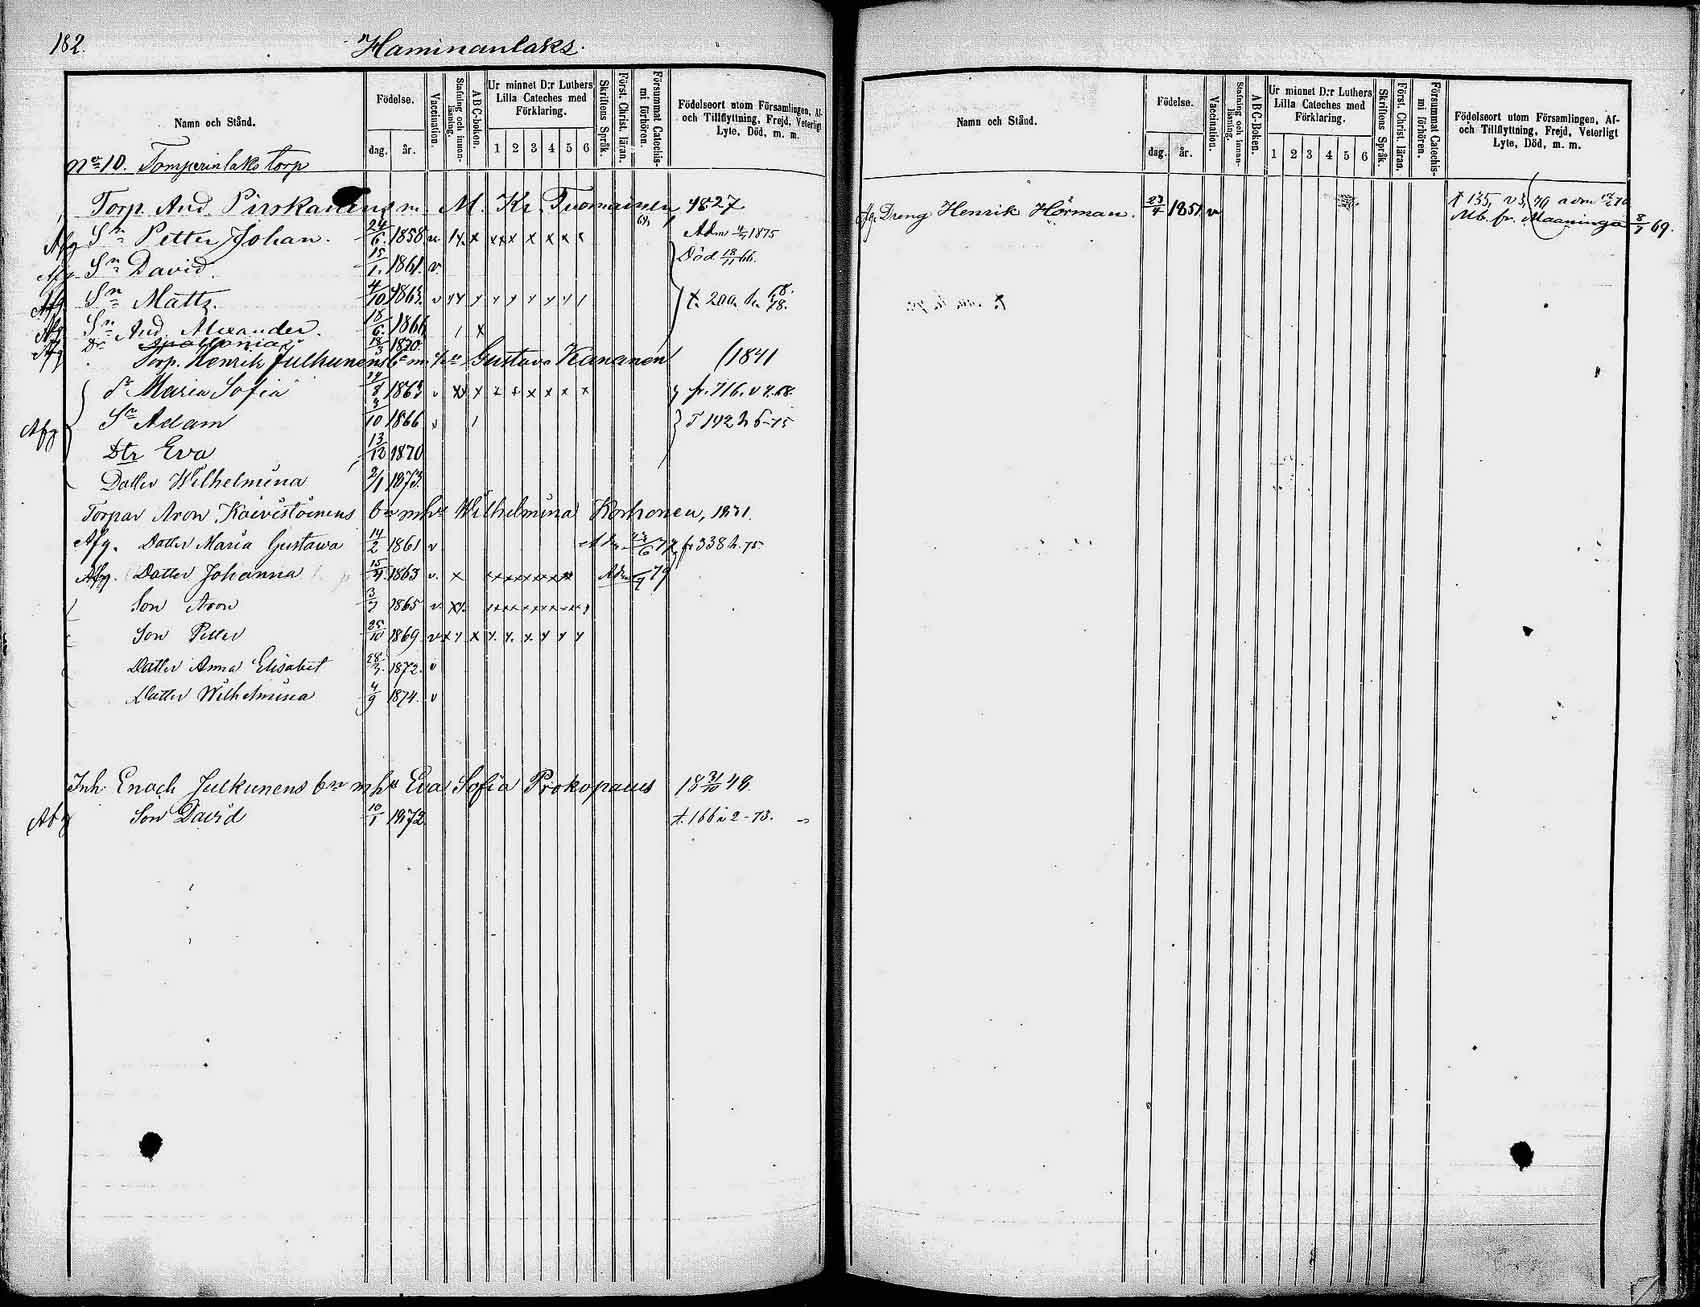 182.
Haminanlaks.
Namn och Stånd.
Födelse.
dag. år.
Vaccination.
Stafning och innanläsning.
ABC-boken.
Ur minnet D:r Luthers Lilla Cateches med Förklaring.
1 2 3 4 5 6
Skriftens Språk.
Först. Christ. läran.
Försummat Catechismi förhören.
Födelseort utom Församlingen, Af- och Tillflyttning, Frejd, Veterligt Lyte, Död, m. m.
No 10. Tomperinlaks torp
Torp. And. Pirskanens m. M. Kr. Tuomainen 1827
Afg Sn Petter Johan. 24/6 1858 v Adm 4/7 1875
Afg Sn David. 15/1 1861. v. Död 18/11 66.
Afg Sn Matts. 4/10 1863. v
Afg Sn And. Alexander. 18/6 1866
Afg Dr Apollonia 1870.
Torp. Henrik Julkunens bn m hu Gustava Kananen 1841
dr Maria Sofia 24/8 1863 v fr. 716. v 7. 68.
Afg Sn Adam 3/10 1866 v T 142 h 6-75
Dtr Eva 13/12 1870
Dotter Wilhelmina 2/1 1873.
Torpar Aron Koivistoinens bn m hu Wilhelmina Korhonen, 1831.
Afg. Dotter Maria Gustava 14/2 1861 v fr 338 h. 75
Afg. Dotter Johanna 15/4 1863 v. Adm 79
Son Aron 3/7 1865 v
Son Petter 25/10 1869 v
Dotter Anna Elisabet 28/7. 1872. v
Dotter Wilhelmina 4/9 1874. v
Inh. Enoch Julkunens bn m hu Eva Sofia Prokopaeus 18 31/10 48.
Afg Son David 10/1 1872 t. 166 a 2-73.
Namn och Stånd.
Födelse.
dag. år.
Vaccination.
Stafning och innanläsning.
ABC-Boken.
Ur minnet D:r Luthers Lilla Cateches med Förklaring.
1 2 3 4 5 6
Skriftens Språk.
Först. Christ. läran.
Försummat Catechismi förhören.
Födelseort utom Församlingen, Af- och Tillflyttning, Frejd, Veterligt Lyte, Död, m. m.
Afg. Dreng Henrik Hörman. 23/4 1851. v t 135,
Mb. fr. Maaninga 8/7 69.